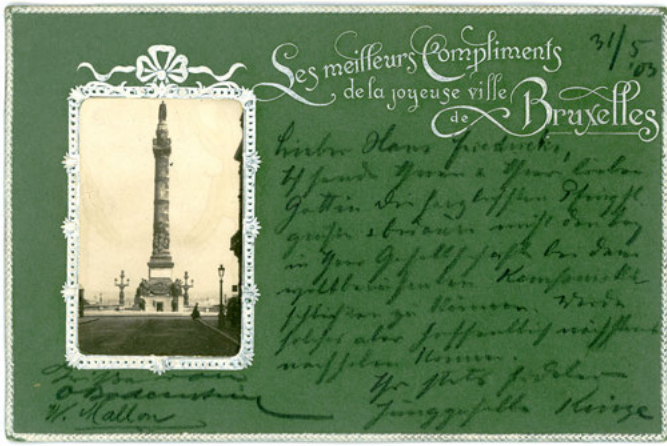 Les meilleurs Compliments
de la joyeuse ville
de Bruxelles
31/5
'03
Lieber Hans
Ich sende Ihnen & Ihrer lieben
Gattin die herzlichsten Pfingst
grüsse & bedaure nicht den Tag
in Ihrer Gesellschaft bei dem
weltberühmten
schliessen zu können. Werde
solches aber hoffentlich nächstens
nachholen können.
Ihr stets fideler
Junggeselle
W. Mallon